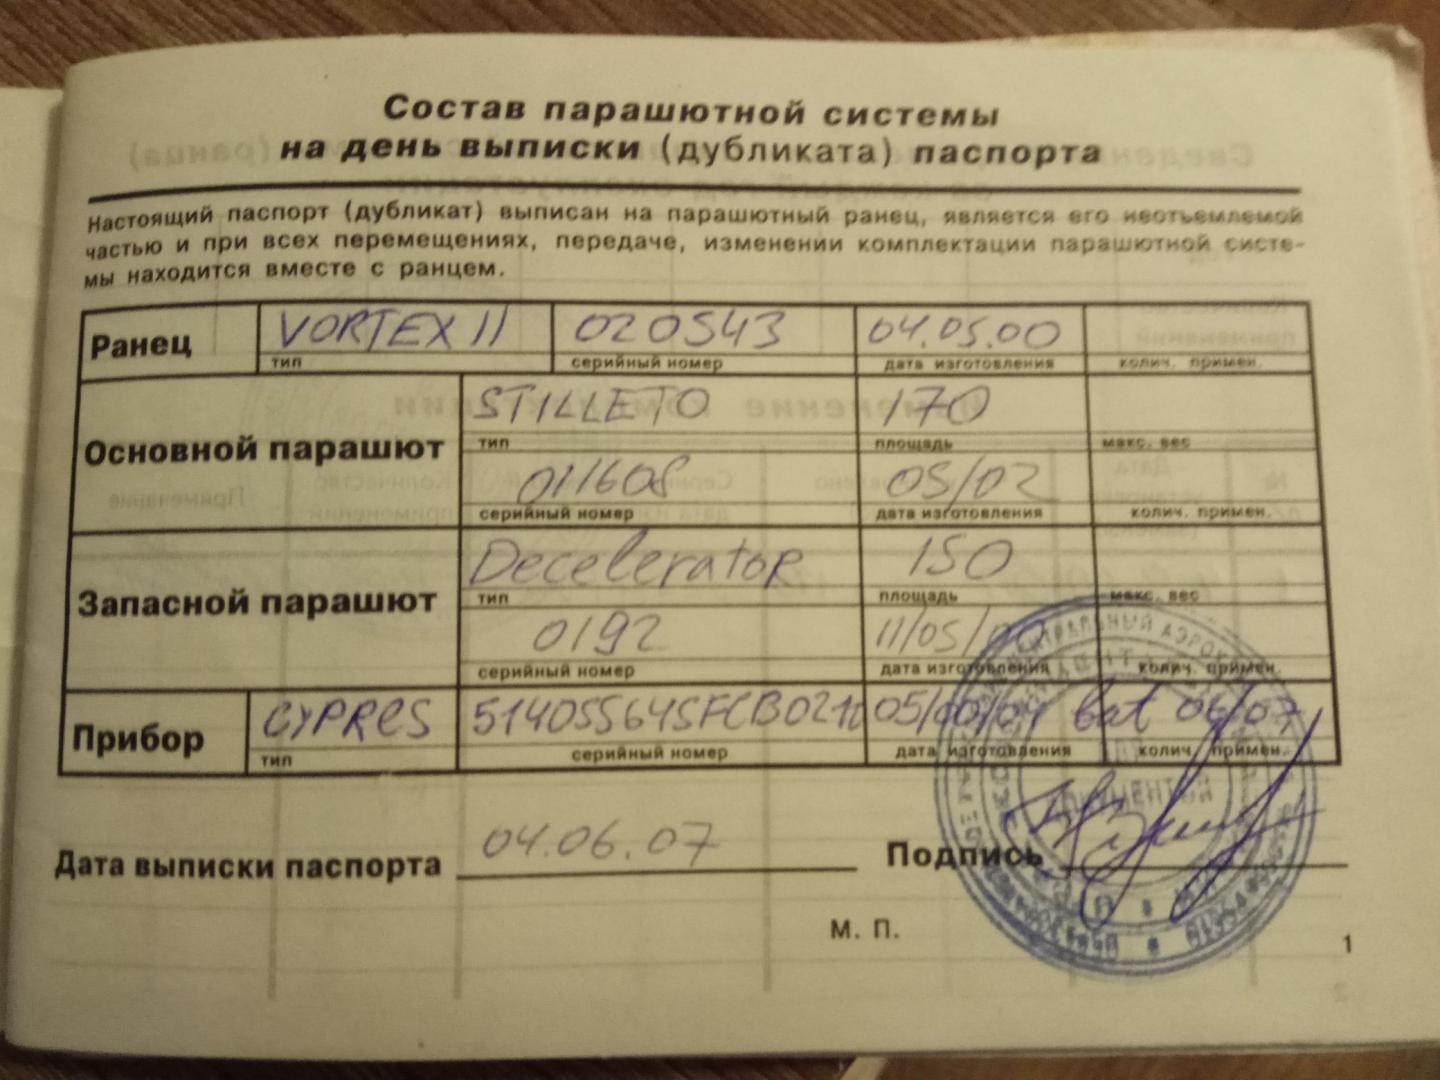 Состав парашютной системы
на день выписки (дубликата) паспорта
Настоящий паспорт (дубликат) выписан на парашютный ранец, является его неотъемлемой
частью и при всех перемещениях, передаче, изменении комплектации парашютной систе-
мы находится вместе с ранцем.
Ранец VORTEX II 020543 04.05.00
тип серийный номер дата изготовления колич. примен.
Основной парашют STILLETO 170
тип площадь макс. вес
011608 05/02
серийный номер дата изготовления колич. примен.
Запасной парашют Decelerator 150
тип площадь макс. вес
0192 11/05/00
серийный номер дата изготовления колич. примен.
Прибор CYPRES bat 06/07
тип серийный номер дата изготовления колич. примен.
Дата выписки паспорта 04.06.07 Подпись
М. П.
1